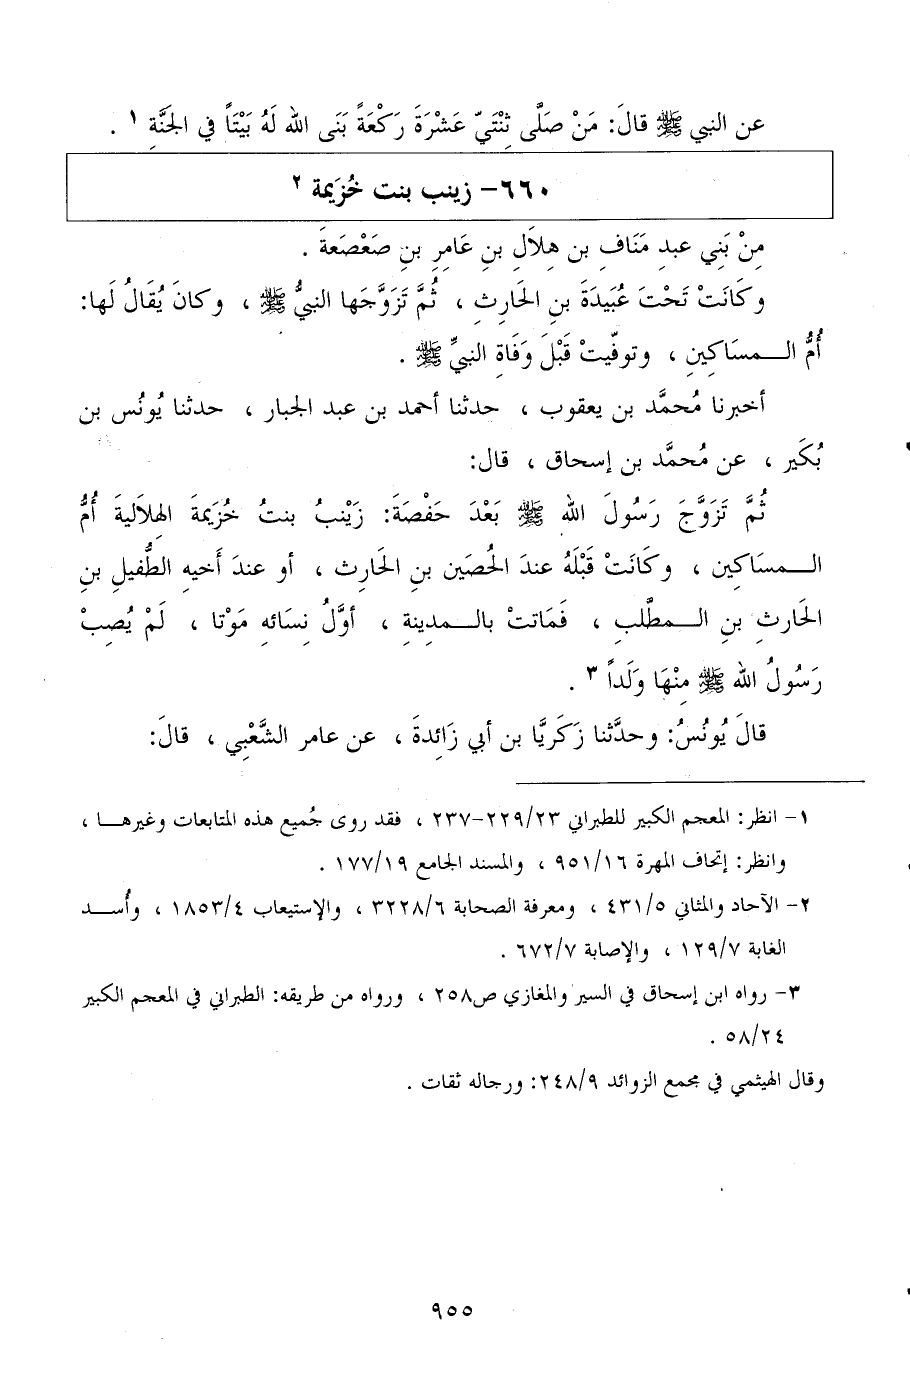 عن النبي ﷺ قالَ: مَنْ صَلَّى ثِنْتَيّ عَشْرَةَ رَكْعَةً بَنَى الله لَهُ بَيْتَاً في الجَنَّةِ ١ .
٦٦٠- زينب بنت خُزَيمة ٢
مِنْ بَنِي عبدِ مَنَاف بن هِلاَلِ بنِ عَامِرِ بنِ صَعْصَعةَ .
وكَانَتْ تَحْتَ عُبَيدَةَ بنِ الحَارِث ، ثُمَّ تَزَوَّجَها النبيُّ ﷺ ، وكانَ يُقَالُ لَها:
أُمُّ المسَاكِينِ ، وتوفّيتْ قَبْلَ وَفَاةِ النبيِّ ﷺ .
أخبرنا مُحمَّد بن يعقوب ، حدثنا أحمد بن عبد الجبار ، حدثنا يُونُس بن
بُكَير ، عن مُحمَّد بن إسحاق ، قال:
ثُمَّ تَزَوَّجَ رَسُولَ الله ﷺ بَعْدَ حَفْصَةَ: زَيْنْبُ بنتُ خُزَيمةَ الهِلاَلية أُمُّ
المسَاكِين ، وكَانَتْ قَبْلَهُ عندَ الحُصَين بنِ الحَارِث ، أو عندَ أَخيهِ الطُّفيلِ بنِ
الحَارثِ بنِ المطَّلبِ ، فَمَاتتْ بالمدِينةِ ، أوَّلُ نِسَائهِ مَوْتا ، لَمْ يُصِبْ
رَسُولُ الله ﷺ مِنْهَا وَلَداً ٣ .
قالَ يُونُسُ: وحدَّثنا زَكَريَّا بن أبي زَائِدةَ ، عن عامر الشَّعْبِي ، قالَ:
١- انظر: المعجم الكبير للطبراني ٢٢٩/٢٣-٢٣٧ ، فقد روى جُميع هذه المتابعات وغيرها ،
وانظر: إتحاف المهرة ٩٥١/١٦ ، والمسند الجامع ١٧٧/١٩ .
٢- الآحاد والمثاني ٤٣١/٥ ، ومعرفة الصحابة ٣٢٢٨/٦ ، والإستيعاب ١٨٥٣/٤ ، وأُسد
الغابة ١٢٩/٧ ، والإصابة ٦٧٢/٧ .
٣- رواه ابن إسحاق في السير والمغازي ص٢٥٨ ، ورواه من طريقه: الطبراني في المعجم الكبير
٥٨/٢٤ .
وقال الهيثمي في مجمع الزوائد ٢٤٨/٩: ورجاله ثقات .
٩٥٥